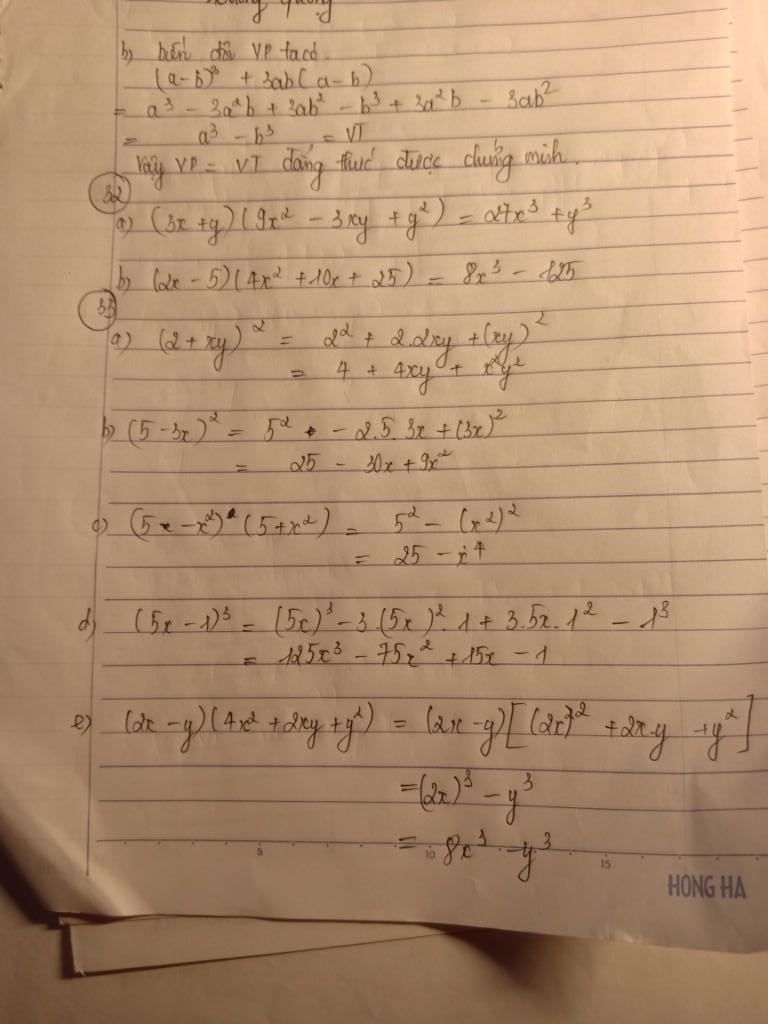 b) biến đổi VP ta có.
(a-b)³ + 3ab(a-b)
= a³ - 3a²b + 3ab² - b³ + 3a²b - 3ab²
= a³ - b³ = VT
Vậy VP = VT đẳng thức được chứng minh.
32
a) (3x+y)(9x² - 3xy + y²) = 27x³ + y³
b) (2x - 5)(4x² + 10x + 25) = 8x³ - 125
33
a) (2 + xy)² = 2² + 2.2xy + (xy)²
= 4 + 4xy + x²y²
b) (5 - 3x)² = 5² - 2.5.3x + (3x)²
= 25 - 30x + 9x²
c) (5 - x²)(5 + x²) = 5² - (x²)²
= 25 - x⁴
d) (5x - 1)³ = (5x)³ - 3.(5x)².1 + 3.5x.1² - 1³
= 125x³ - 75x² + 15x - 1
e) (2x - y)(4x² + 2xy + y²) = (2x - y)[(2x)² + 2x.y + y²]
= (2x)³ - y³
= 8x³ - y³
5 10 15
HONG HA